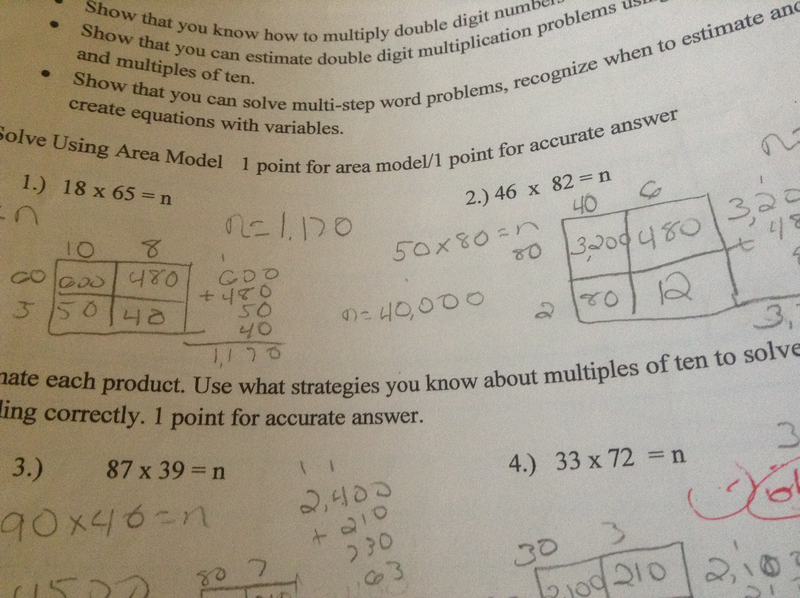 Show that you know how to multiply double digit numbers
Show that you can estimate double digit multiplication problems
and multiples of ten.
Show that you can solve multi-step word problems, recognize when to estimate and
create equations with variables.
Solve Using Area Model 1 point for area model/1 point for accurate answer
1.) 18 x 65 = n
n = 1,170
10 8
60 600 480
5 50 40
600
+ 480
50
40
1,170
2.) 46 x 82 = n
50 x 80 = n
n = 40,000
40 6
80 3,200 480
2 80 12
3,20
+ 48
3,
each product. Use what strategies you know about multiples of ten to solve
correctly. 1 point for accurate answer.
3.) 87 x 39 = n
90 x 40 = n
80 7
1 1
2,400
+ 210
63
4.) 33 x 72 = n
30 3
2,100 210